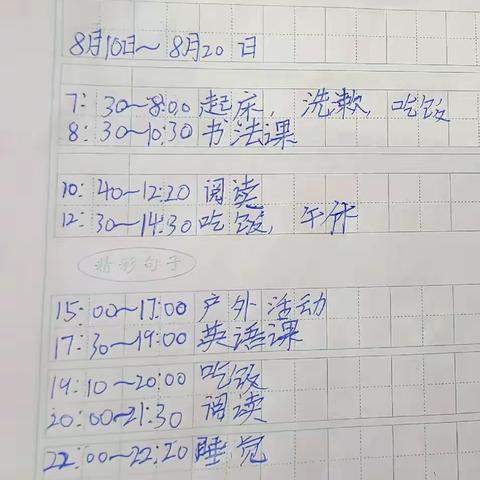 8月10日～8月20日
7:30～8:00 起床，洗漱，吃饭
8:30～10:30 书法课
10:40～12:20 阅读
12:30～14:30 吃饭，午休
精彩句子
15:00～17:00 户外活动
17:30～19:00 英语课
19:10～20:00 吃饭
20:00～21:30 阅读
22:00～22:20 睡觉